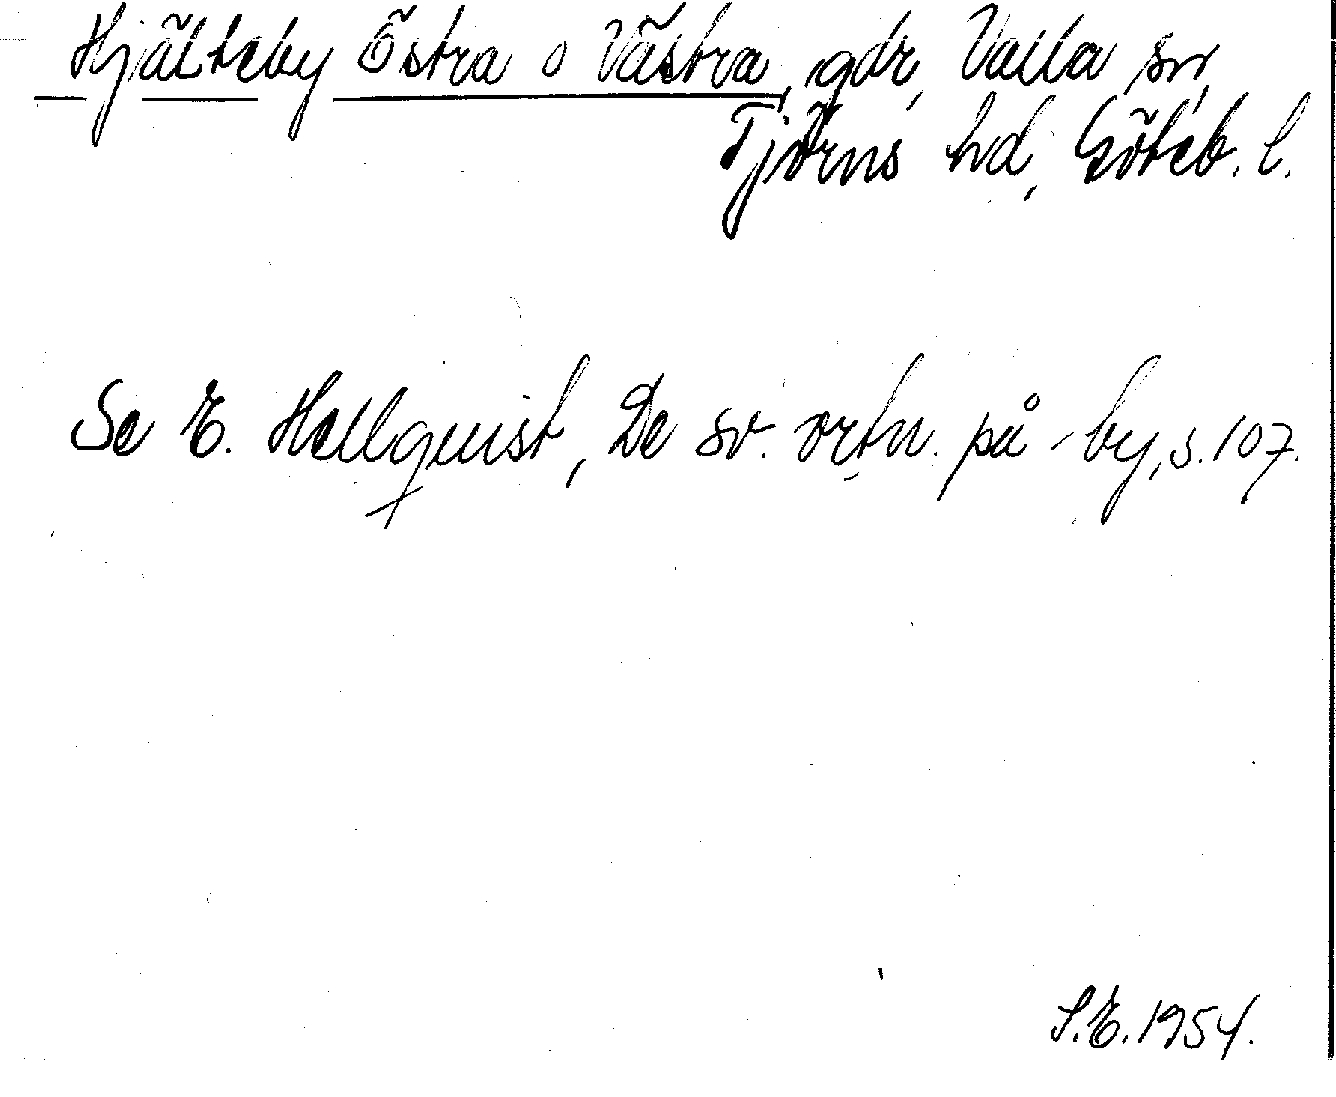 Hjälteby Östra o Västra, gdr, Valla sn,
Tjörns hd, Göteb. l.
Se E. Hellquist, De sv. ortn. på -by, s. 107.
S.E. 1954.